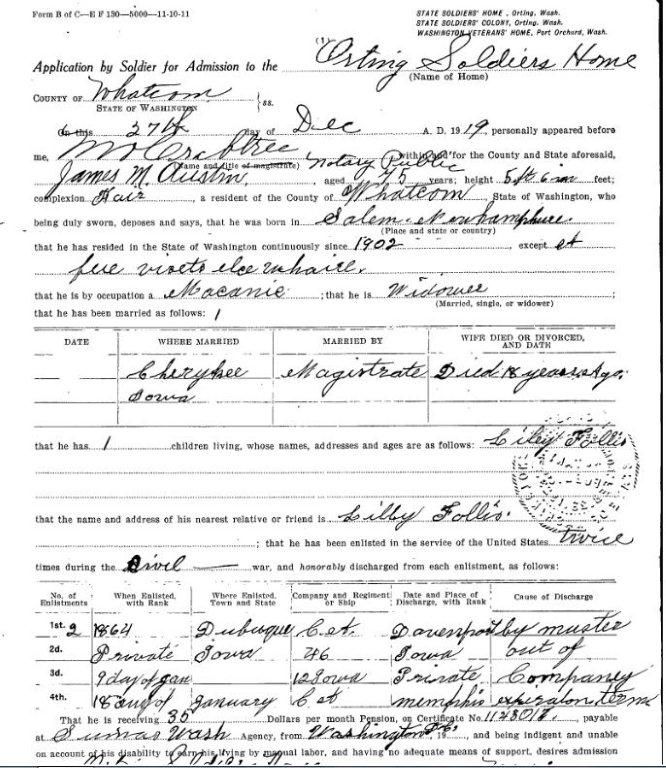 Form B of C—E F 130—5000—11-10-11
STATE SOLDIERS' HOME, Orting, Wash.
STATE SOLDIERS' COLONY, Orting, Wash.
WASHINGTON VETERANS' HOME, Port Orchard, Wash.
Application by Soldier for Admission to the (1) Orting Soldiers Home
(Name of Home)
COUNTY OF Whatcom
STATE OF WASHINGTON } ss.
On this 27th day of Dec A. D. 1919, personally appeared before
me, Crabtree Notary Public within and for the County and State aforesaid,
(Name and title of magistrate)
James M. Austin, aged 75 years; height 5 ft 6 in feet;
complexion Fair, a resident of the County of Whatcom, State of Washington, who
being duly sworn, deposes and says, that he was born in Salem
(Place and state or country)
that he has resided in the State of Washington continuously since 1902 except
that he is by occupation a Macanic; that he is Widower
(Married, single, or widower)
that he has been married as follows: 1
DATE WHERE MARRIED MARRIED BY WIFE DIED OR DIVORCED, AND DATE
Cherykee Magistrate Died 18 years Ago.
Iowa
that he has 1 children living, whose names, addresses and ages are as follows: Liley Follis
that the name and address of his nearest relative or friend is Lilby Follis.
; that he has been enlisted in the service of the United States twice
times during the Civil war, and honorably discharged from each enlistment, as follows:
No. of Enlistments When Enlisted, with Rank Where Enlisted, Town and State Company and Regiment or Ship Date and Place of Discharge, with Rank Cause of Discharge
1st. 2 1864 Dubuque C. Davenport by muster
2d. Private Iowa 46 Iowa out of
3d. 9 day of Jan 12 Iowa Private Company
4th. 18 day of January C memphis term
That he is receiving 35 Dollars per month Pension, on Certificate No. payable
at Sumas Wash Agency, from Washington 19, and being indigent and unable
on account of his disability to earn his living by manual labor, and having no adequate means of support, desires admission